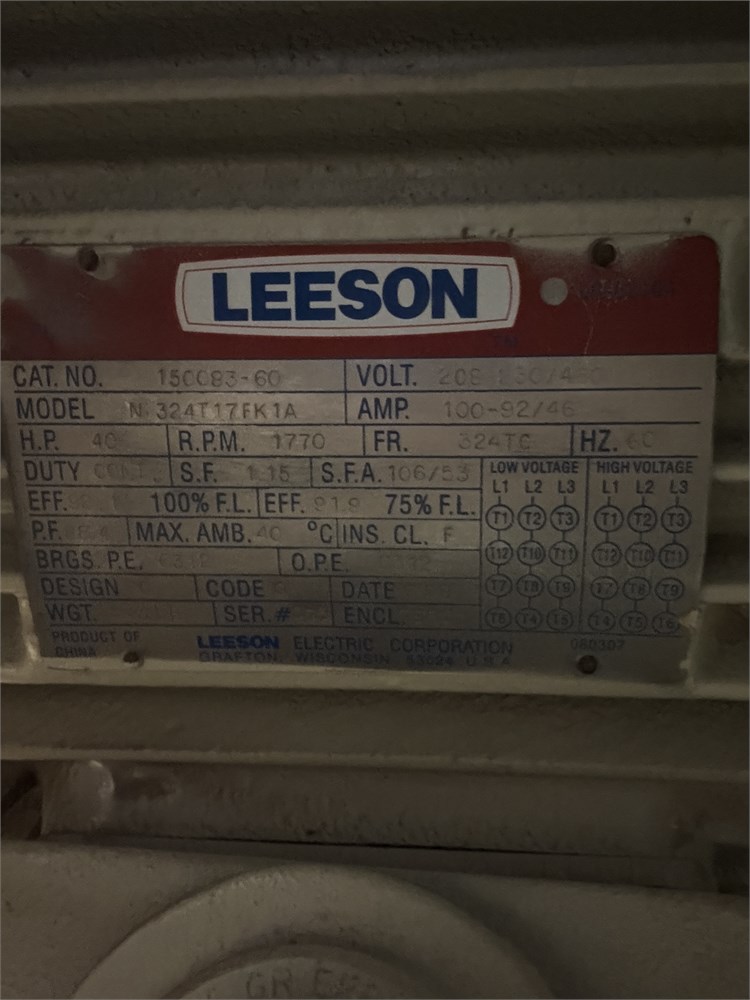 LEESON
CAT. NO. 150083-60 VOLT. 208-230/460
MODEL N 324T17FK1A AMP. 100-92/46
H.P. 40 R.P.M. 1770 FR. 324TC HZ. 60
DUTY CONT. S.F. 1.15 S.F.A. 106/53 LOW VOLTAGE HIGH VOLTAGE
L1 L2 L3 L1 L2 L3
EFF. 100% F.L. EFF. 91.9 75% F.L.
T1 T2 T3 T1 T2 T3
P.F. MAX. AMB. 40 °C INS. CL. F
T12 T10 T11 T12 T10 T11
BRGS. P.E. O.P.E.
DESIGN CODE DATE
T7 T8 T9 T7 T8 T9
WGT. SER.# ENCL.
T6 T4 T5 T4 T5 T6
PRODUCT OF CHINA
LEESON ELECTRIC CORPORATION 080307
GRAFTON, WISCONSIN 53024 U.S.A.